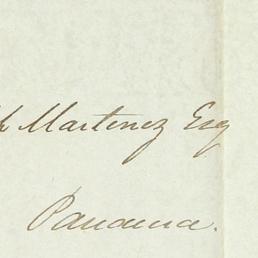 Martinez Esq
Panama.